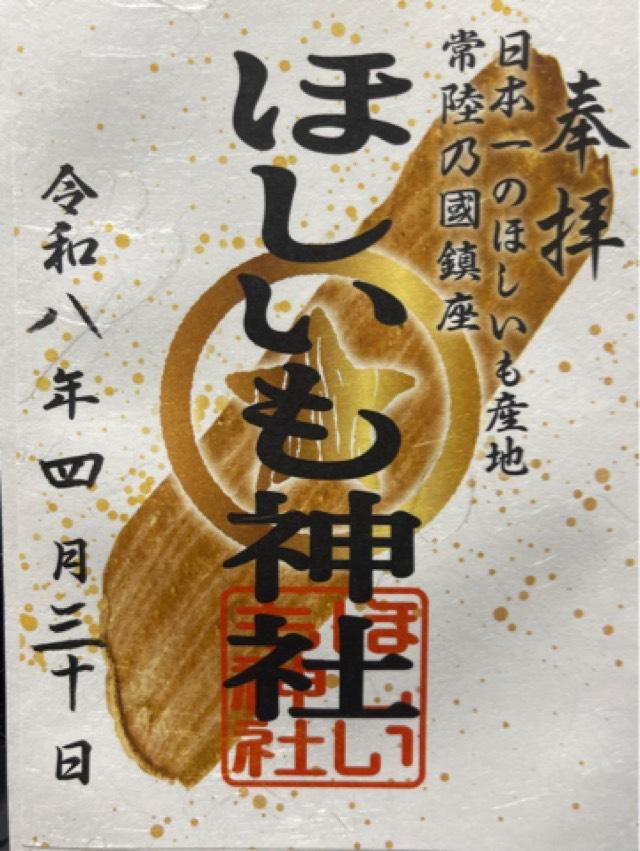 奉拝
日本一のほしいも産地
常陸乃國鎮座
ほしいも神社
ほしい
も神社
令和八年四月三十日